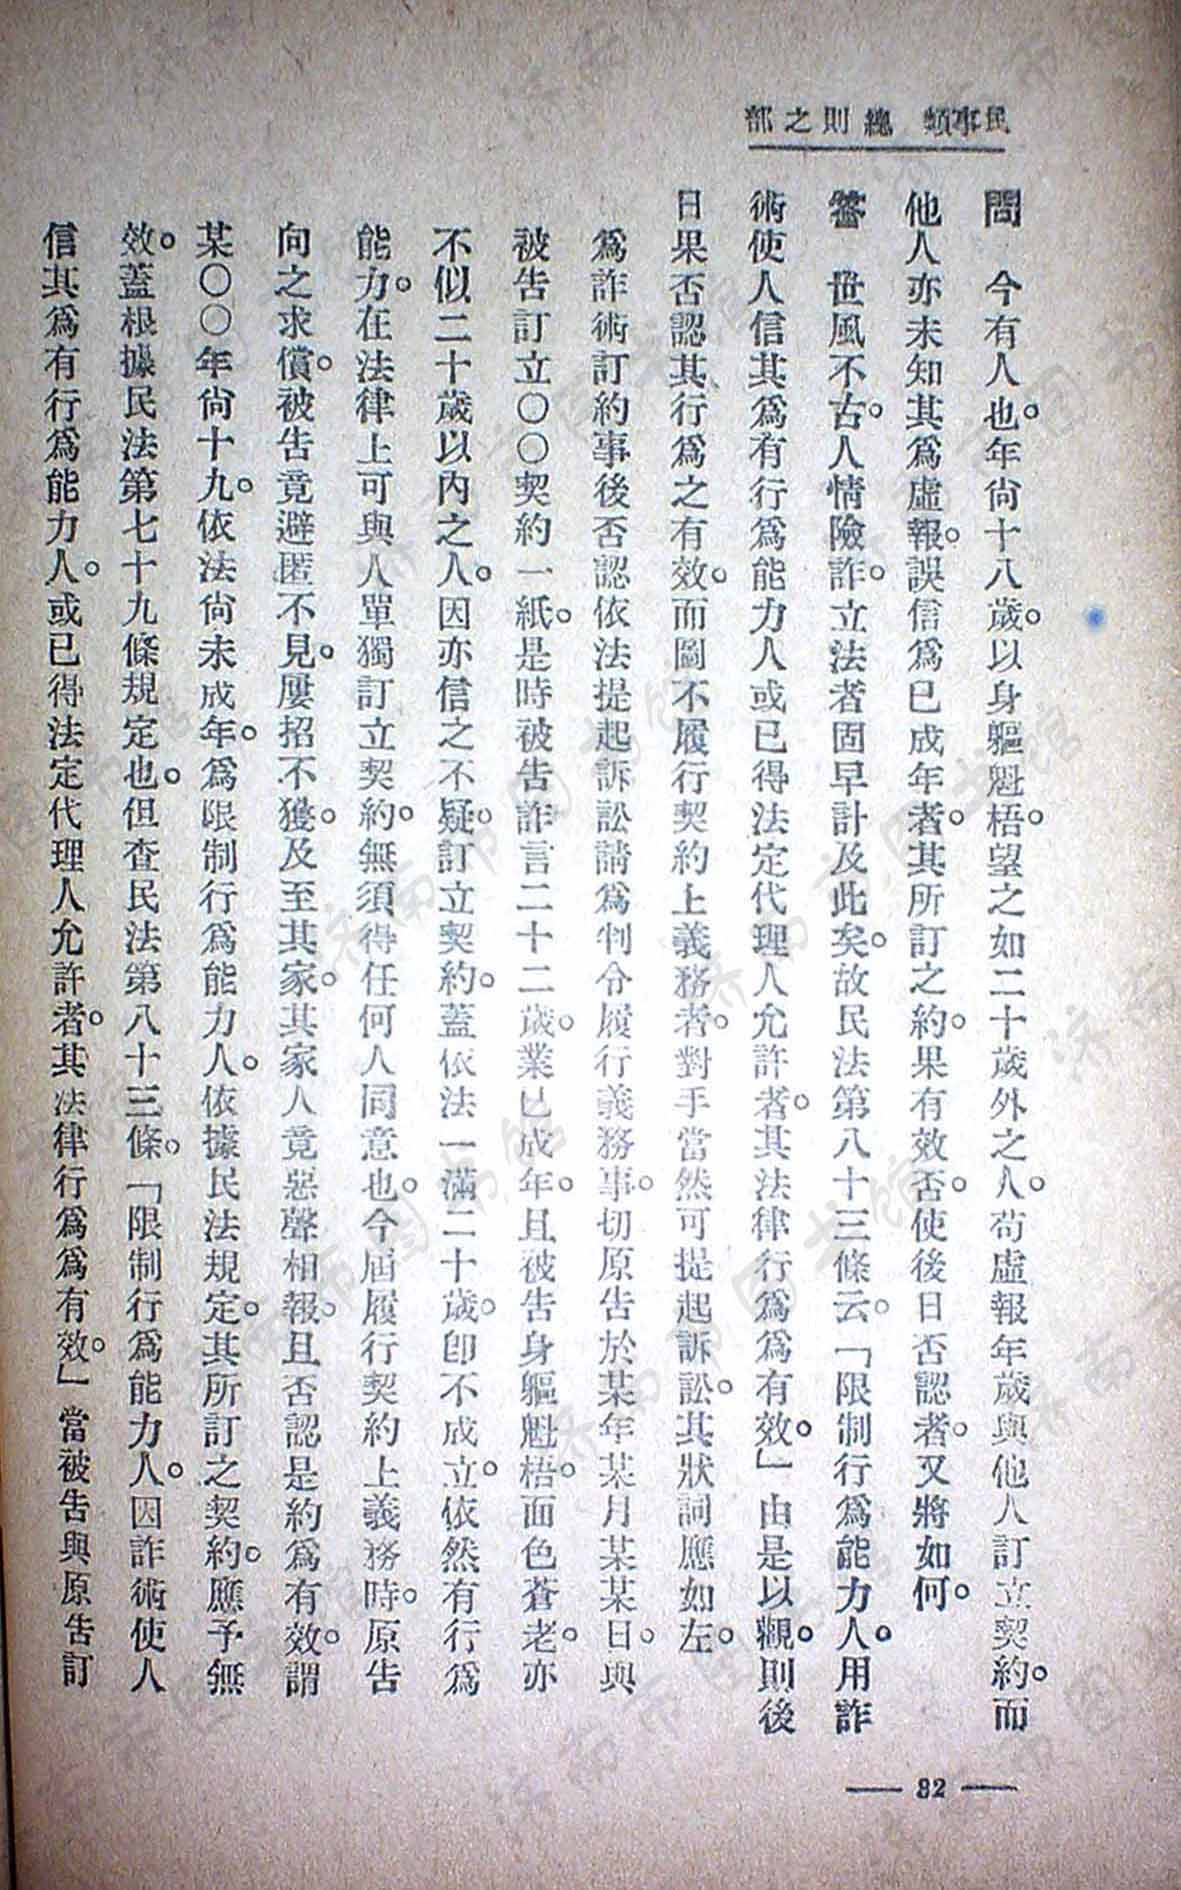 民事類 總則之部
問 今有人也。年尙十八歲。以身軀魁梧。望之如二十歲外之人。苟虛報年歲與他人訂立契約。而
他人亦未知其爲虛報。誤信爲已成年者。其所訂之約。果有效否。使後日否認者。又將如何。
答 世風不古。人情險詐。立法者固早計及此矣。故民法第八十三條云。「限制行爲能力人。用詐
術使人信其爲有行爲能力人或已得法定代理人允許者。其法律行爲爲有效。」由是以觀。則後
日果否認其行爲之有效。而圖不履行契約上義務者。對手當然可提起訴訟。其狀詞應如左。
爲詐術訂約事後否認依法提起訴訟請爲判令履行義務事。切原告於某年某月某某日。與
被告訂立〇〇契約一紙。是時被告詐言二十二歲。業已成年。且被告身軀魁梧。面色蒼老。亦
不似二十歲以內之人。因亦信之不疑。訂立契約。蓋依法一滿二十歲。卽不成立。依然有行爲
能力。在法律上可與人單獨訂立契約。無須得任何人同意也。今屆履行契約上義務時。原告
向之求償。被告竟避匿不見。屢招不獲。及至其家。其家人竟惡聲相報。且否認是約爲有效。謂
某〇〇年尙十九。依法尙未成年。爲限制行爲能力人。依據民法規定。其所訂之契約。應予無
效。蓋根據民法第七十九條規定也。但查民法第八十三條。「限制行爲能力人。因詐術使人
信其爲有行爲能力人。或已得法定代理人允許者。其法律行爲爲有效。」當被告與原告訂
— 82 —
济南市图书馆